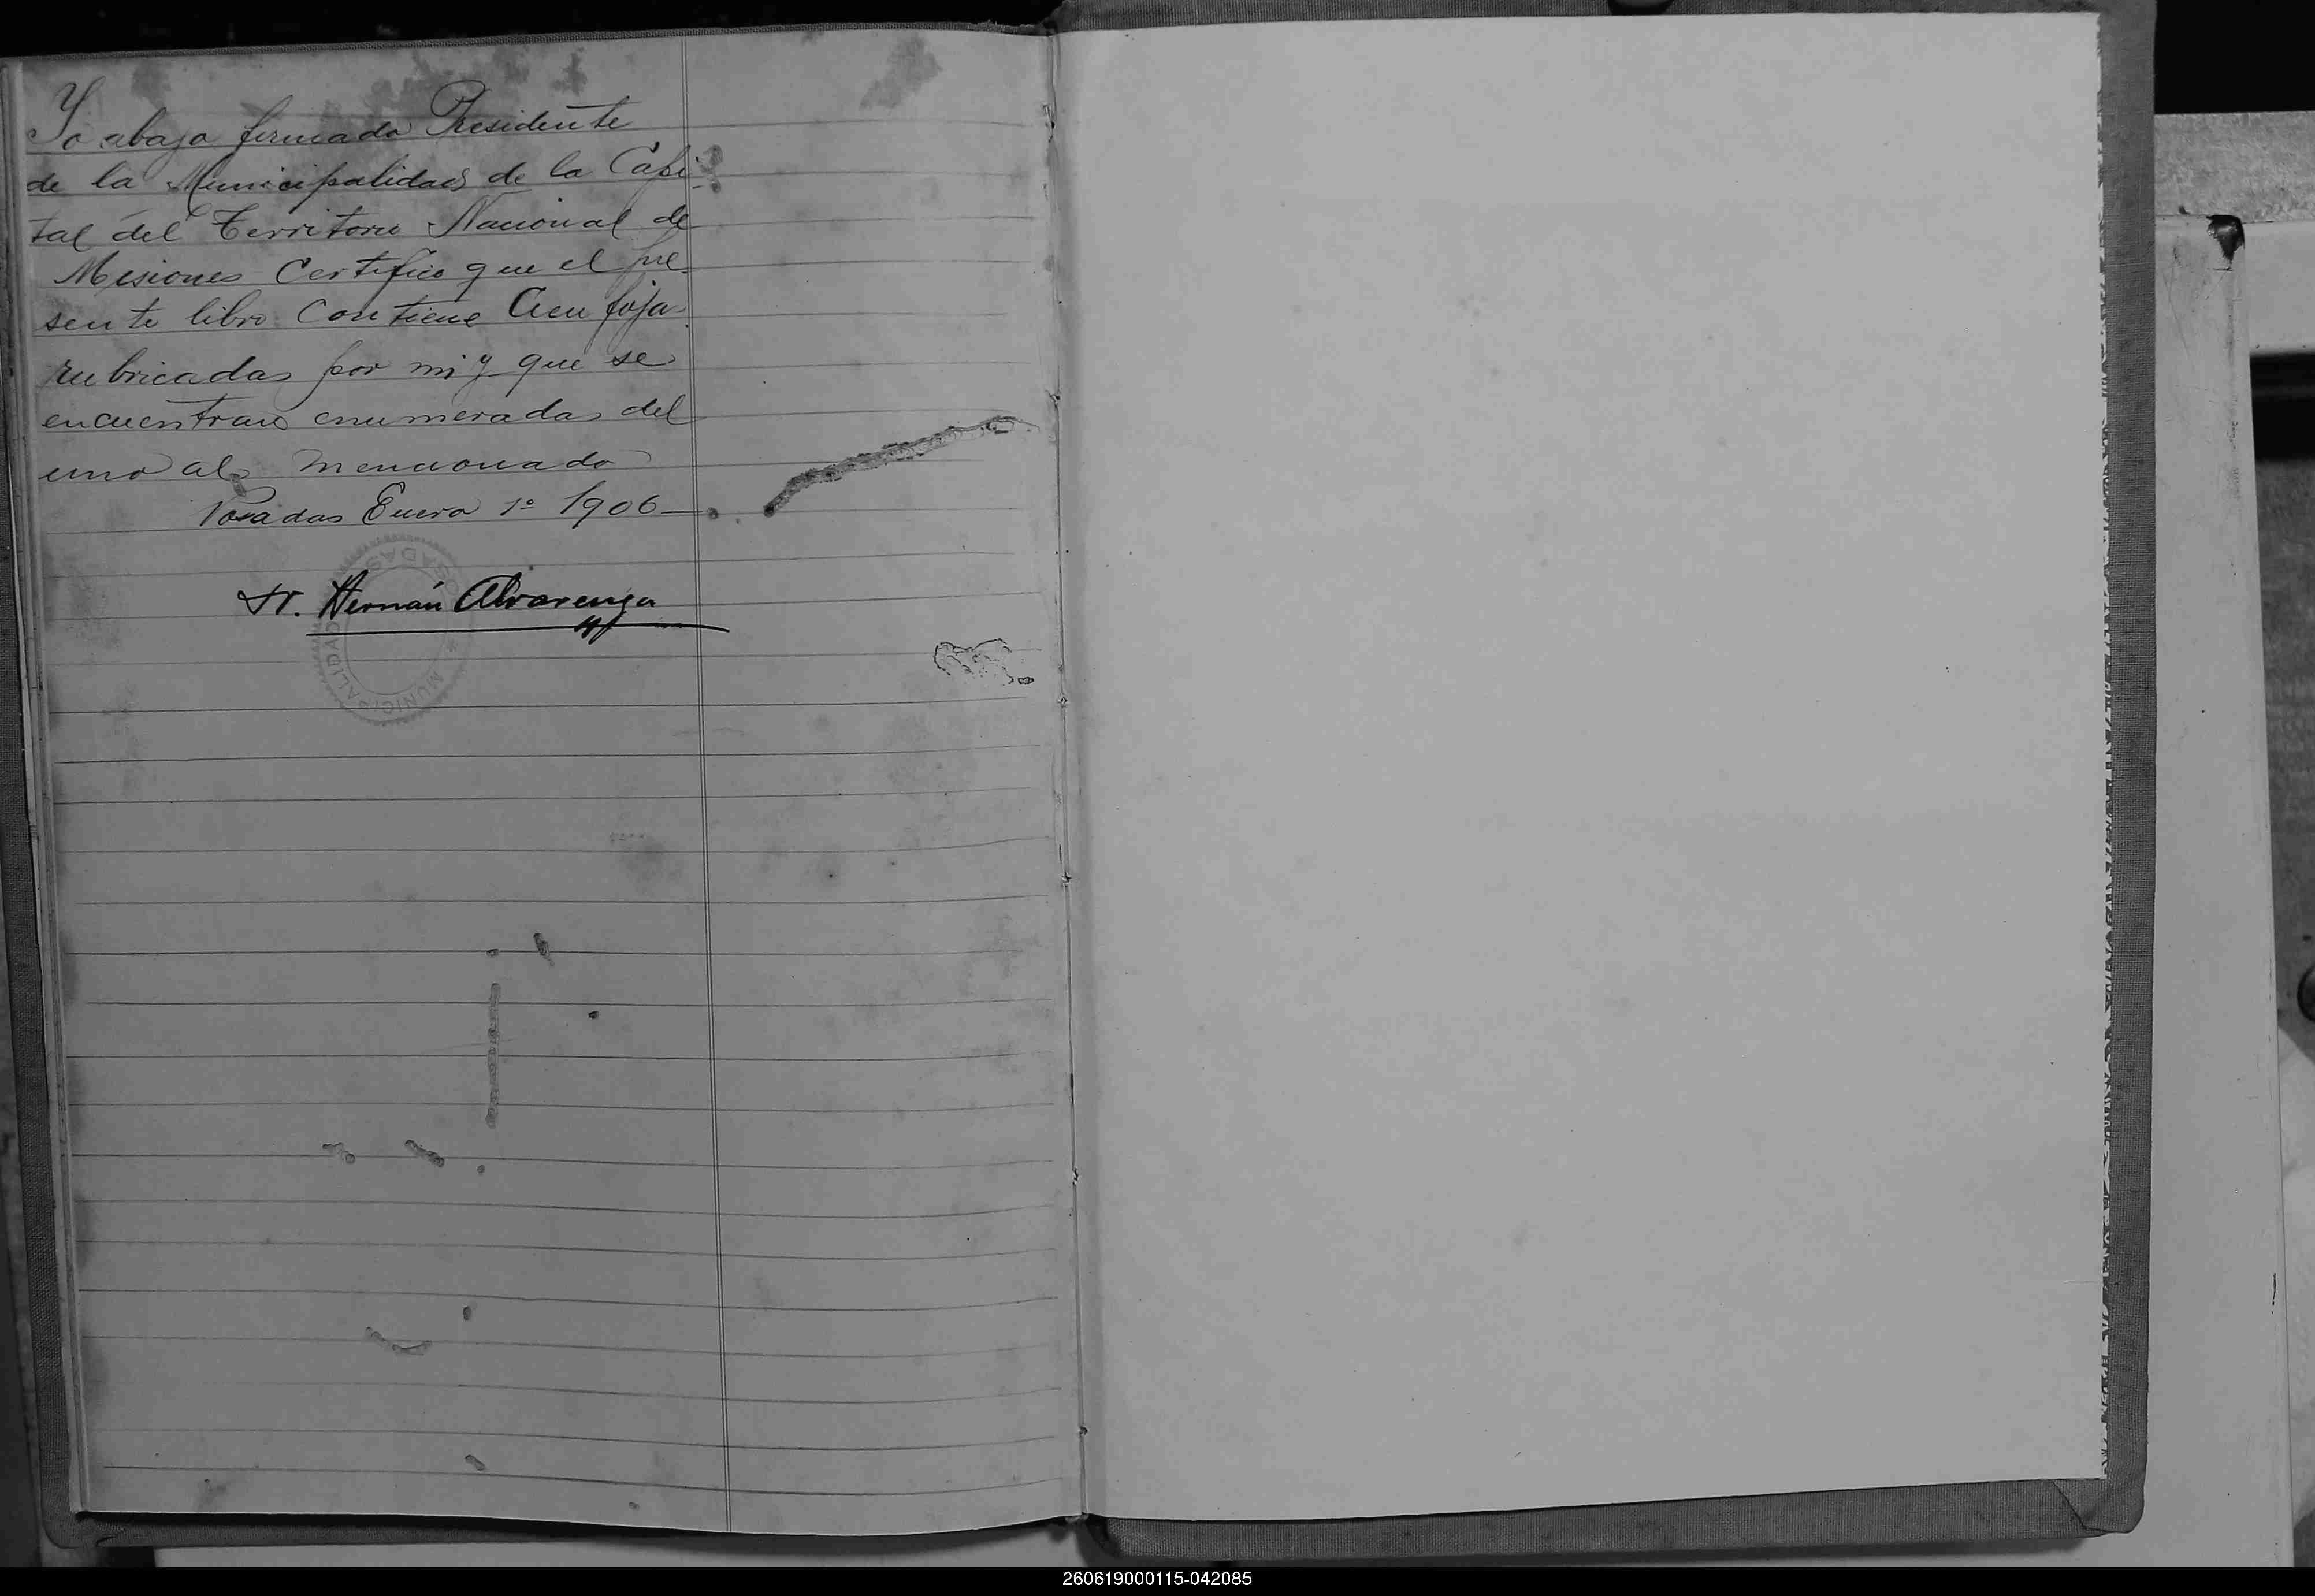 Yo abajo firmado Presidente
de la Municipalidad de la Capi-
tal del Territorio Nacional de
Misiones Certifico que el pre-
sente libro Contiene Cien foja
rubricadas por mi y que se
encuentran enumeradas del
uno al mencionado
Posadas Enero 1º 1906
Hernán Alvarenga
MUNICIPALIDAD
POSADAS
260619000115-042085